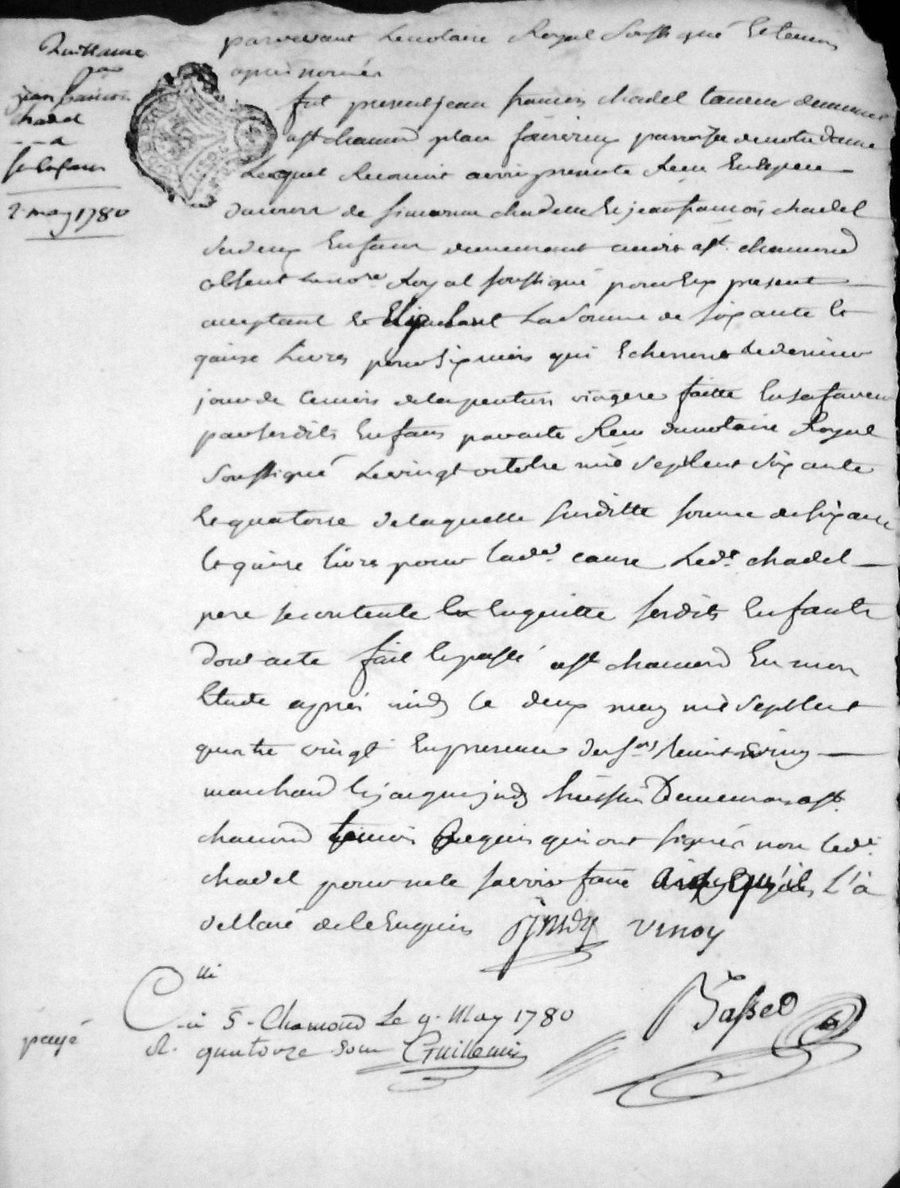 Quittance
par
jean françois
chadel
a
ses enfans
2. may 1780
pardevant Le notaire Royal soussigné et temoins
aprés només
fut present jean françois chadel demeurant
a st. chamond place parroisse de notre dame
Lequel Reconnoit avoir presentement Receu En Espece
de simonne chadelle Et jean françois chadel
ses deux Enfans demeurant audit st. chamond
absent Le nore. Royal soussigné pour Eux present
acceptant et stipulant La somme de soixante et
quinze Livres pour six mois qui Echerront le dernier
jour de ce mois de la pention viagere faitte En sa faveur
par sesdits Enfans par acte Receu du notaire Royal
soussigné Le vingt octobre mil sept cent soixante
et quatorze de laquelle susditte somme de soixante
et quinze livres pour lade. cause Ledt. chadel
pere se contente Et En quitte sesdits Enfants
dont acte fait et passé a st. chamond En mon
Etude aprés midy le deux may mil sept cent
quatre vingt En presence de srs
marchand Et jacques huissier Demeurant a st.
chamond temoins Requis qui ont signés non ledt.
chadel pour ne le savoir faire ainsy qu'il L'a
declaré de ce Enquis vinoy
Cllé
à St. Chamond Le 9. May 1780
payé
R. quatorze sous Guillemin
Bassed